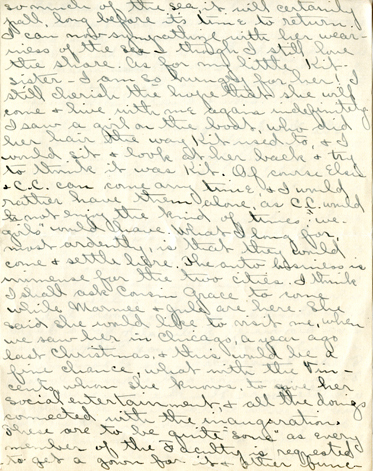 so much of the sea, it will certainly
pall, long before it's time to return.
I can not sympathize with her wear-
iness of the sea & though I still love
the shore. As for my little Kit-
sister - I am so hungry for her! I
still cherish the hope that she will
come & live with me again indefinitely
I saw a girl on the boat, who did
her hair the way Kit used to, & I
would sit & look at her back & try
to think it was Kit. Of course Elsa
& C.C. can come any time, & I would
rather have them alone, as C.C. would
not enjoy the kind of times "we
girls" would have. What I long for,
most ardently, is that they would
come & settle here. The auto business is
immense for the two cities. I think
I shall ask Cousin Grace to come
while Marnee & Jule are here. She
said she would like to visit me, when
we saw her in Chicago, a year ago
last Christmas, & this would be a
fine chance, what with the Vin-
cents, whom she knows, to give her
social entertainment, & all the doings
connected with the inauguration.
These are to be quite "some" as every
member of the Faculty is requested
to get a gown for it &